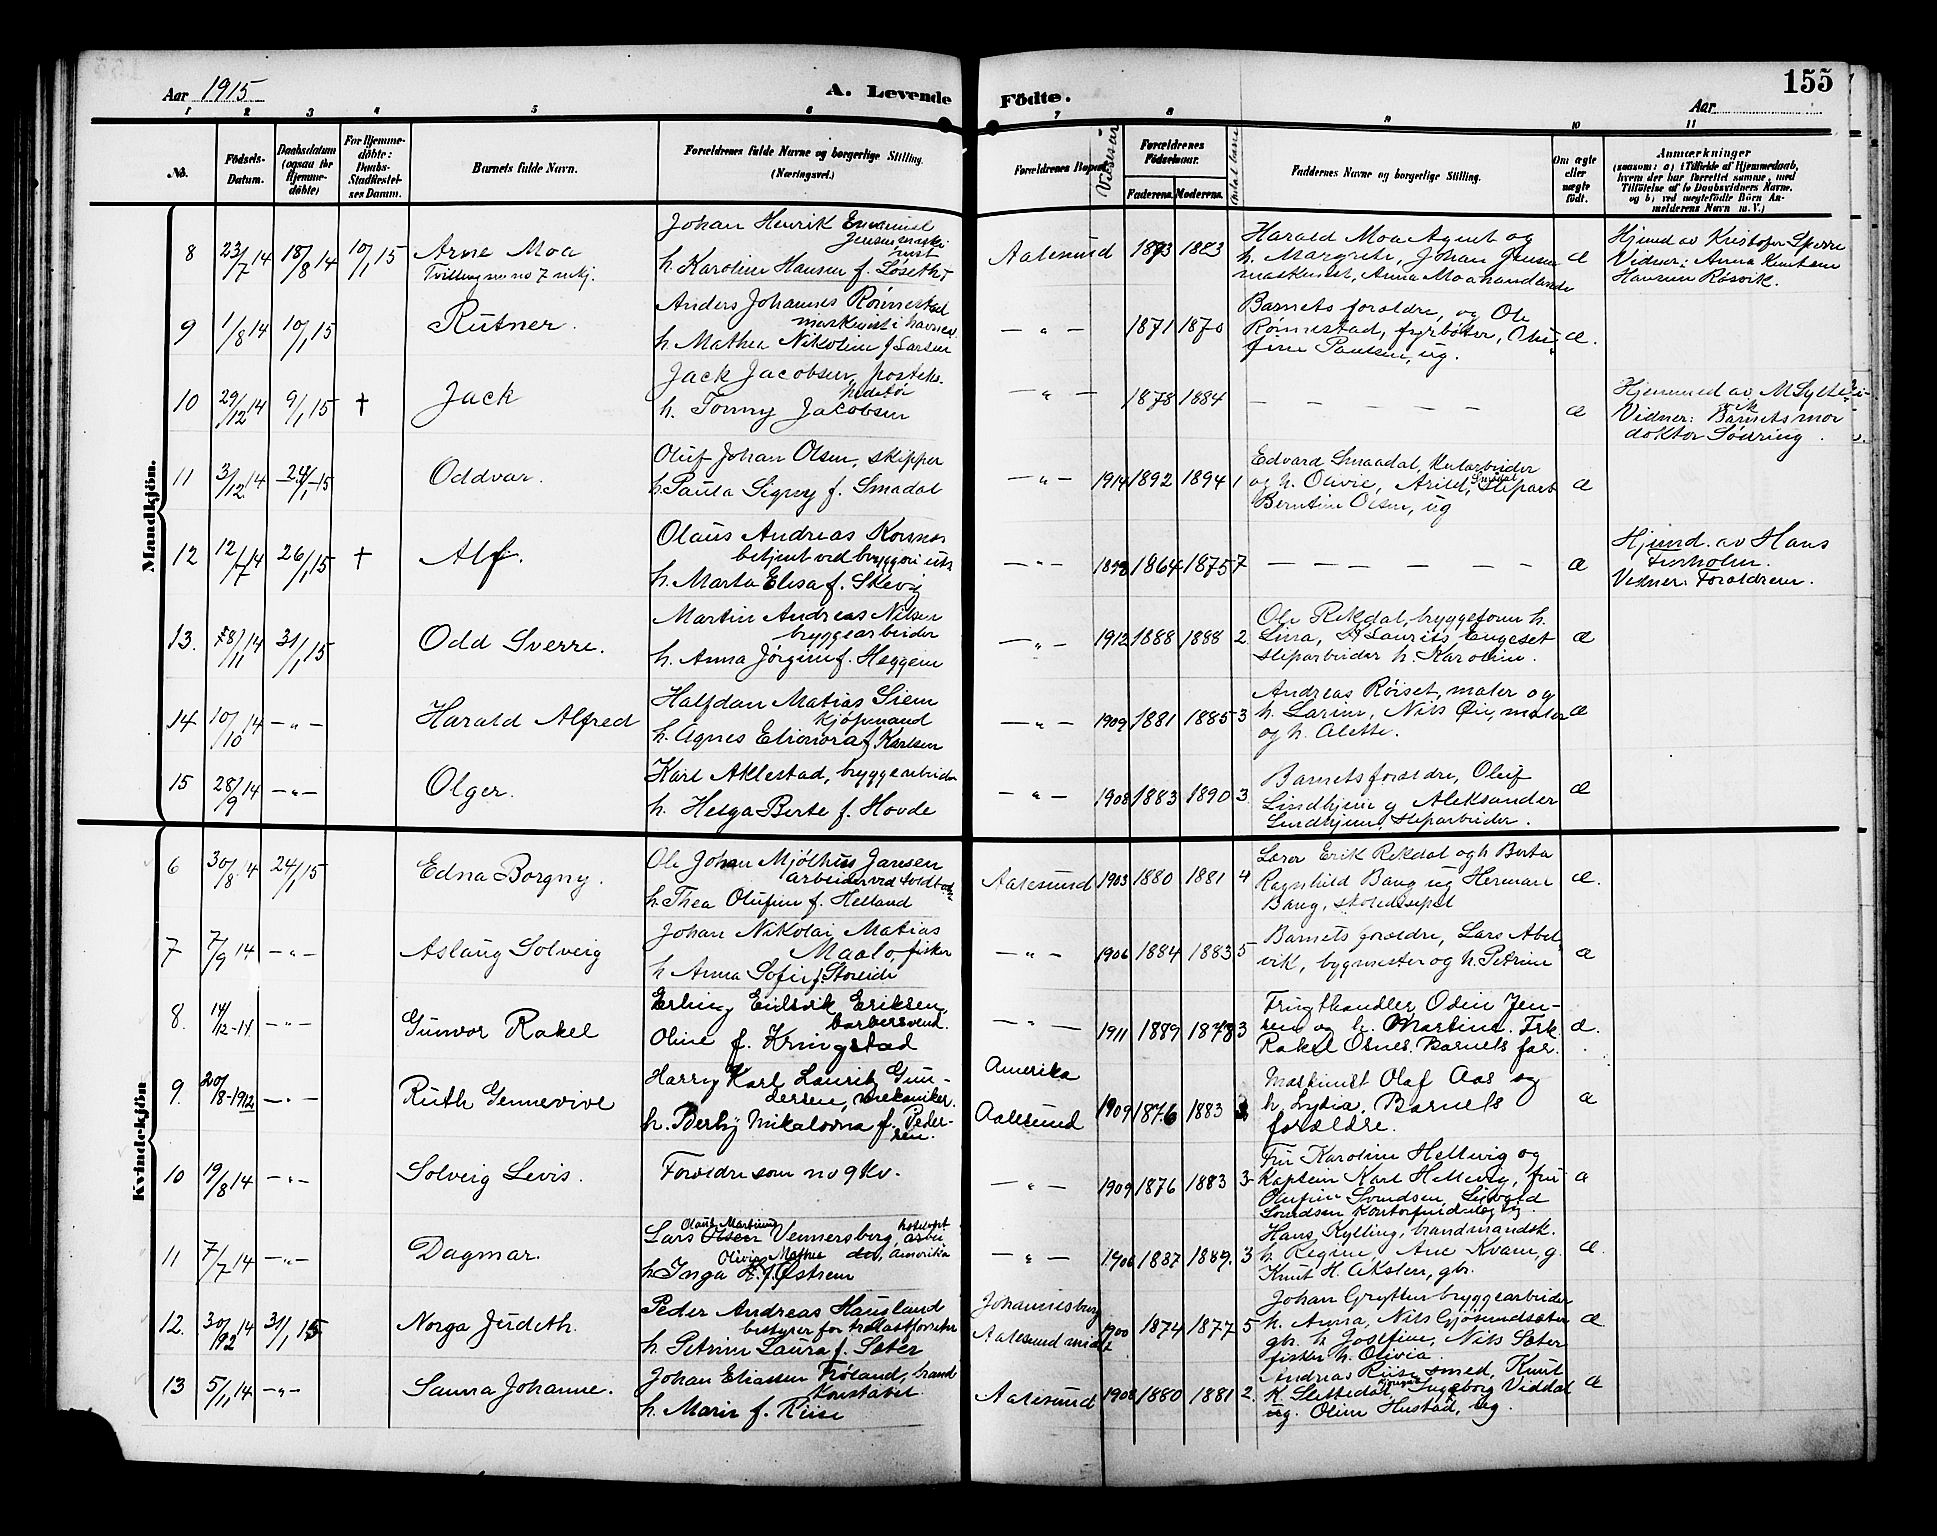 155
Aar 1915
A. Levende
Födte.
Aar
1 2 3 4 5 6 7 8 9 10 11
No.
Födsels-Datum.
Daabsdatum (ogsaa for Hjemmedöbte)
For Hjemmedöbte: Daabs-Stadfæstelses Datum.
Barnets fulde Navn.
Forældrenes fulde Navne og borgerlige Stilling. (Næringsvei.)
Forældrenes Bopæl.
Vielsesaar
Forældrenes Födselsaar.
Faderens. Moderens.
Antal barn
Faddernes Navne og borgerlige Stilling.
Om ægte eller uægte födt.
Anmærkninger
(saasom: a) i Tilfælde af Hjemmedaab, hvem der har forrettet samme, med Tilföielse af to Daabsvidners Navne. og b) ved uægtefödte Börn Anmelderens Navn m. V.)
Mandkjön.
8 23/7 14 18/8 14 10/1 15 Arne Moa
Tvilling m no 7 mkj.
Johan Henrik Enevald
Jensen maski
nist
h. Karoline Hansen f. Løseth
Aalesund 1873 1883
Harald Moa Agent og
h. Margrete, Johan Jensen
maskinist, Anna Moa handlende
æ
Hjemd av Kristofer Sperre
Vidner: Anna Knutsen
Hansen Røsvik.
9 1/8 14 10/1 15 Rutner.
Anders Johannes Rønnestad
maskinist i havnev.
h. Mathea Nikoline f Larsen
— " — 1871 1870
Barnets foraldre, og Ole
Rønnestad, fyrbøter, Olu
fine Paulsen, ug.
æ.
10 29/12 14 9/1 15 † Jack
Jack Jacobsen, posteks.
peditør
h. Tonny Jacobsen
— " — 1878 1884 — — — — —
æ
Hjemmed av M Sylte
Vidner: Barnets mor
doktor Södring.
11 3/12 14 24/1 15 Oddvar.
Oluf Johan Olsen, skipper
h. Paula Signy f. Smadal
— " — 1914 1892 1894 1
Edvard Smaadal,
og h. Olivie, Arild, Smådal sliparb
Berntine Olsen, ug
æ
12 12/7 14 26/1 15 † Alf.
Olaus Andreas Korsnes
betjent ved bryggeri uts
h. Marta Elisa f. Skevig
— " — 1898 1864 1875 7 — — — — — —
æ
Hjemd. av Hans
Finholm.
Vidner: Foraldrene.
13. 28/11 14 31/1 15 Odd Sverre.
Martin Andreas Nilsen
bryggearbeider
h. Anna Jørgine f. Heggem
— " — 1912 1888 1888 2
Ole Rekdal, bryggeform h.
Lina, Laurits Engeset
sliparbeider h. Karoline.
æ
14 10/10 14 — " — Harald Alfred
Halfdan Matias Siem
kjøpmand
h. Agnes Elionora f Karlsen
— " — 1909 1881 1885 3
Andreas Røiset, maler og
h. Larine, Nils Øie, maler
og h. Alette.
æ
15 28/9 14 — " — Olger.
Karl Aklestad, bryggearbeider
h. Helga Berte f. Hovde
— " — 1908 1883 1890 3
Barnets foraldre, Oluf
Lindhjem og Aleksander
Lindhjem, sliparbeider.
æ
Kvindekjön
6 30/8 14 24/1 15 Edna Borgny.
Ole Johan Mjølhus Jansen
arbeider ved
h. Thea Olufine f. Helland
Aalesund 1903 1880 1881 4
Lærer Erik Rekdal og h Berta
Ragnhild Bang ug Herman
Bang,
æ.
7 7/9 14 — " — Aslaug Solveig
Johan Nikolai Matias
Maalo, fisker
h Anna Sofie f. Storeide
— " — 1906 1884 1883 5
Barnets foraldre, Lars Abel
vik, bygmester og h. Petrine
æ
8. 14/12-14 — " — Gunvor Rakel
Erling Eidsvik Eriksen,
barbersvend.
Oline f. Kringstad
— " — 1911 1889 1878 3
Frugthandler Odin Jen-
sen og h. Martine. Frk
Rakel Osnes. Barnets far.
æ.
9. 20/8-1912 — " — Ruth Gennevive
Harry Karl Laurits Gun-
dersen, mekaniker.
h. Berhy Mikalovna f. Peder-
sen.
Amerika
Aalesund 1909 1876 1883 2
Maskinist Olaf Aas og
h. Lydia. Barnets
forældre.
æ
10 19/8 14 — " — Solveig Levis.
Foreldre som no 9 Kv.
— " — 1909 1876 1883 3
Fru Karoline Hellevig og
Kaptein Karl Hellevig, fru
Olufine Svendsen, Sigvald
Svendsen kontorfuldmegtig.
æ
11 7/7 14 — " — Dagmar.
Lars Olaus Martinus Vennersberg,
Amerika
h Inga Olivia Mathea f. Østrem
— " — 1906 1887 1889. 3
Hans Kylling, brandmandsk.
h. Regine, Ane Kvam, g.
Knut H. Akslen, gbr.
æ.
12. 30/12 14 31/1 15 Norga Judeth.
Peder Andreas Haugland
bestyrer for trælastforretn
h Petrine Laura f. Sæter
Johannesborg
Aalesund 1900 1874 1877 5
Johan Grytten bryggearbeider
h. Anna, Nils Gjøsundsæter
gbr. h Josefine, Nils Sæter
fisker h. Olivia
æ
13 5/11 14 — " — Sanna Johanne.
Johan Eliassen Frøland, brand
konstabel
h. Marie f. Riise
Aalesund 1908 1880 1881 2.
Andreas Riise smed, Knut
K. Slettedal, Ingeborg Viddal
ug. Oline Hustad, ug.
æ